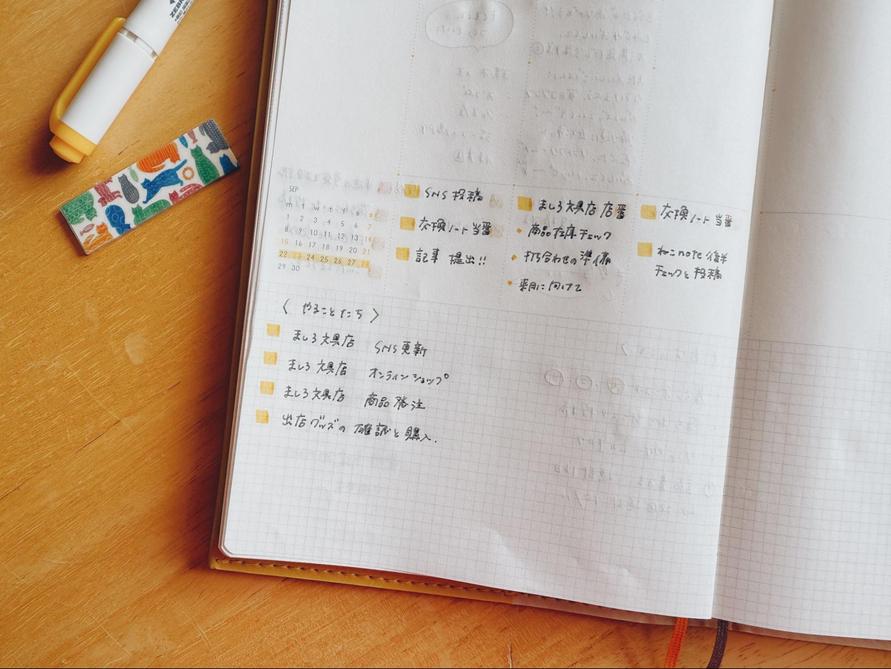 SEP
1 2 3 4 5 6 7
8 9 10 11 12 13 14
15 16 17 18 19 20 21
22 23 24 25 26 27 28
29 30
SNS 投稿
交換ノート当番
記事 提出!!
ましろ文具店 店番
• 商品在庫チェック
• 打ち合わせの準備
• 来月に向けて
交換ノート当番
ねこnote 後半
チェックと投稿
〈 やることたち 〉
ましろ文具店 SNS更新
ましろ文具店 オンラインショップ
ましろ文具店 商品発注
出店グッズの確認と購入.